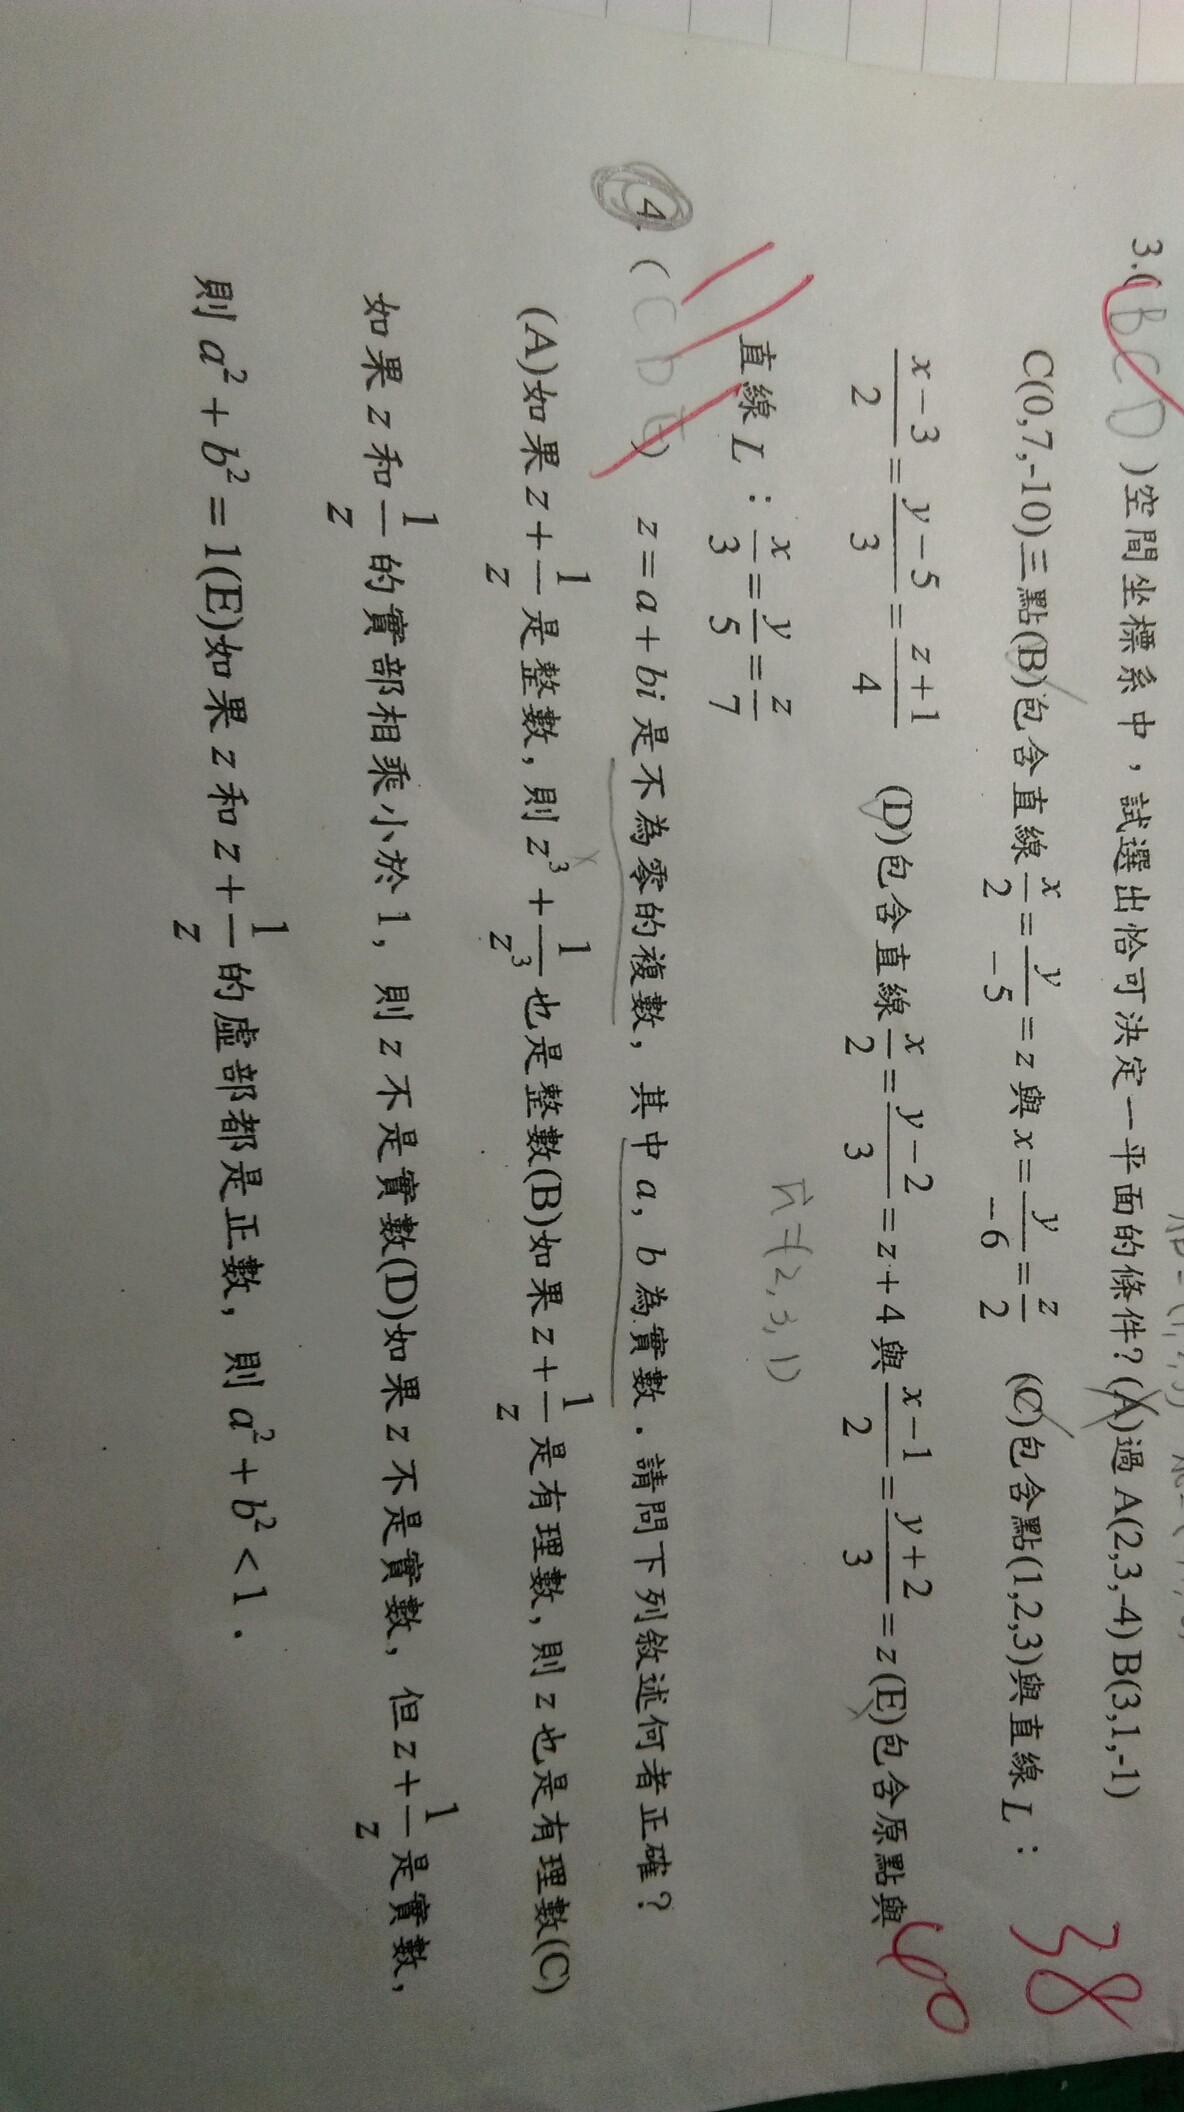 3.(BCD)空間坐標系中，試選出恰可決定一平面的條件?(A)過 A(2,3,-4) B(3,1,-1)
C(0,7,-10)三點(B)包含直線 x/2 = y/-5 = z 與 x = y/-6 = z/2 (C)包含點(1,2,3)與直線 L：
38
(x-3)/2 = (y-5)/3 = (z+1)/4 (D)包含直線 x/2 = (y-2)/3 = z+4 與 (x-1)/2 = (y+2)/3 = z (E)包含原點與
60
直線 L：x/3 = y/5 = z/7
n=(2,3,1)
4.(CDE) z = a + bi 是不為零的複數，其中 a, b 為實數．請問下列敘述何者正確？
(A)如果 z + 1/z 是整數，則 z³ + 1/z³ 也是整數(B)如果 z + 1/z 是有理數，則 z 也是有理數(C)
如果 z 和 1/z 的實部相乘小於 1，則 z 不是實數(D)如果 z 不是實數，但 z + 1/z 是實數，
則 a² + b² = 1(E)如果 z 和 z + 1/z 的虛部都是正數，則 a² + b² < 1．